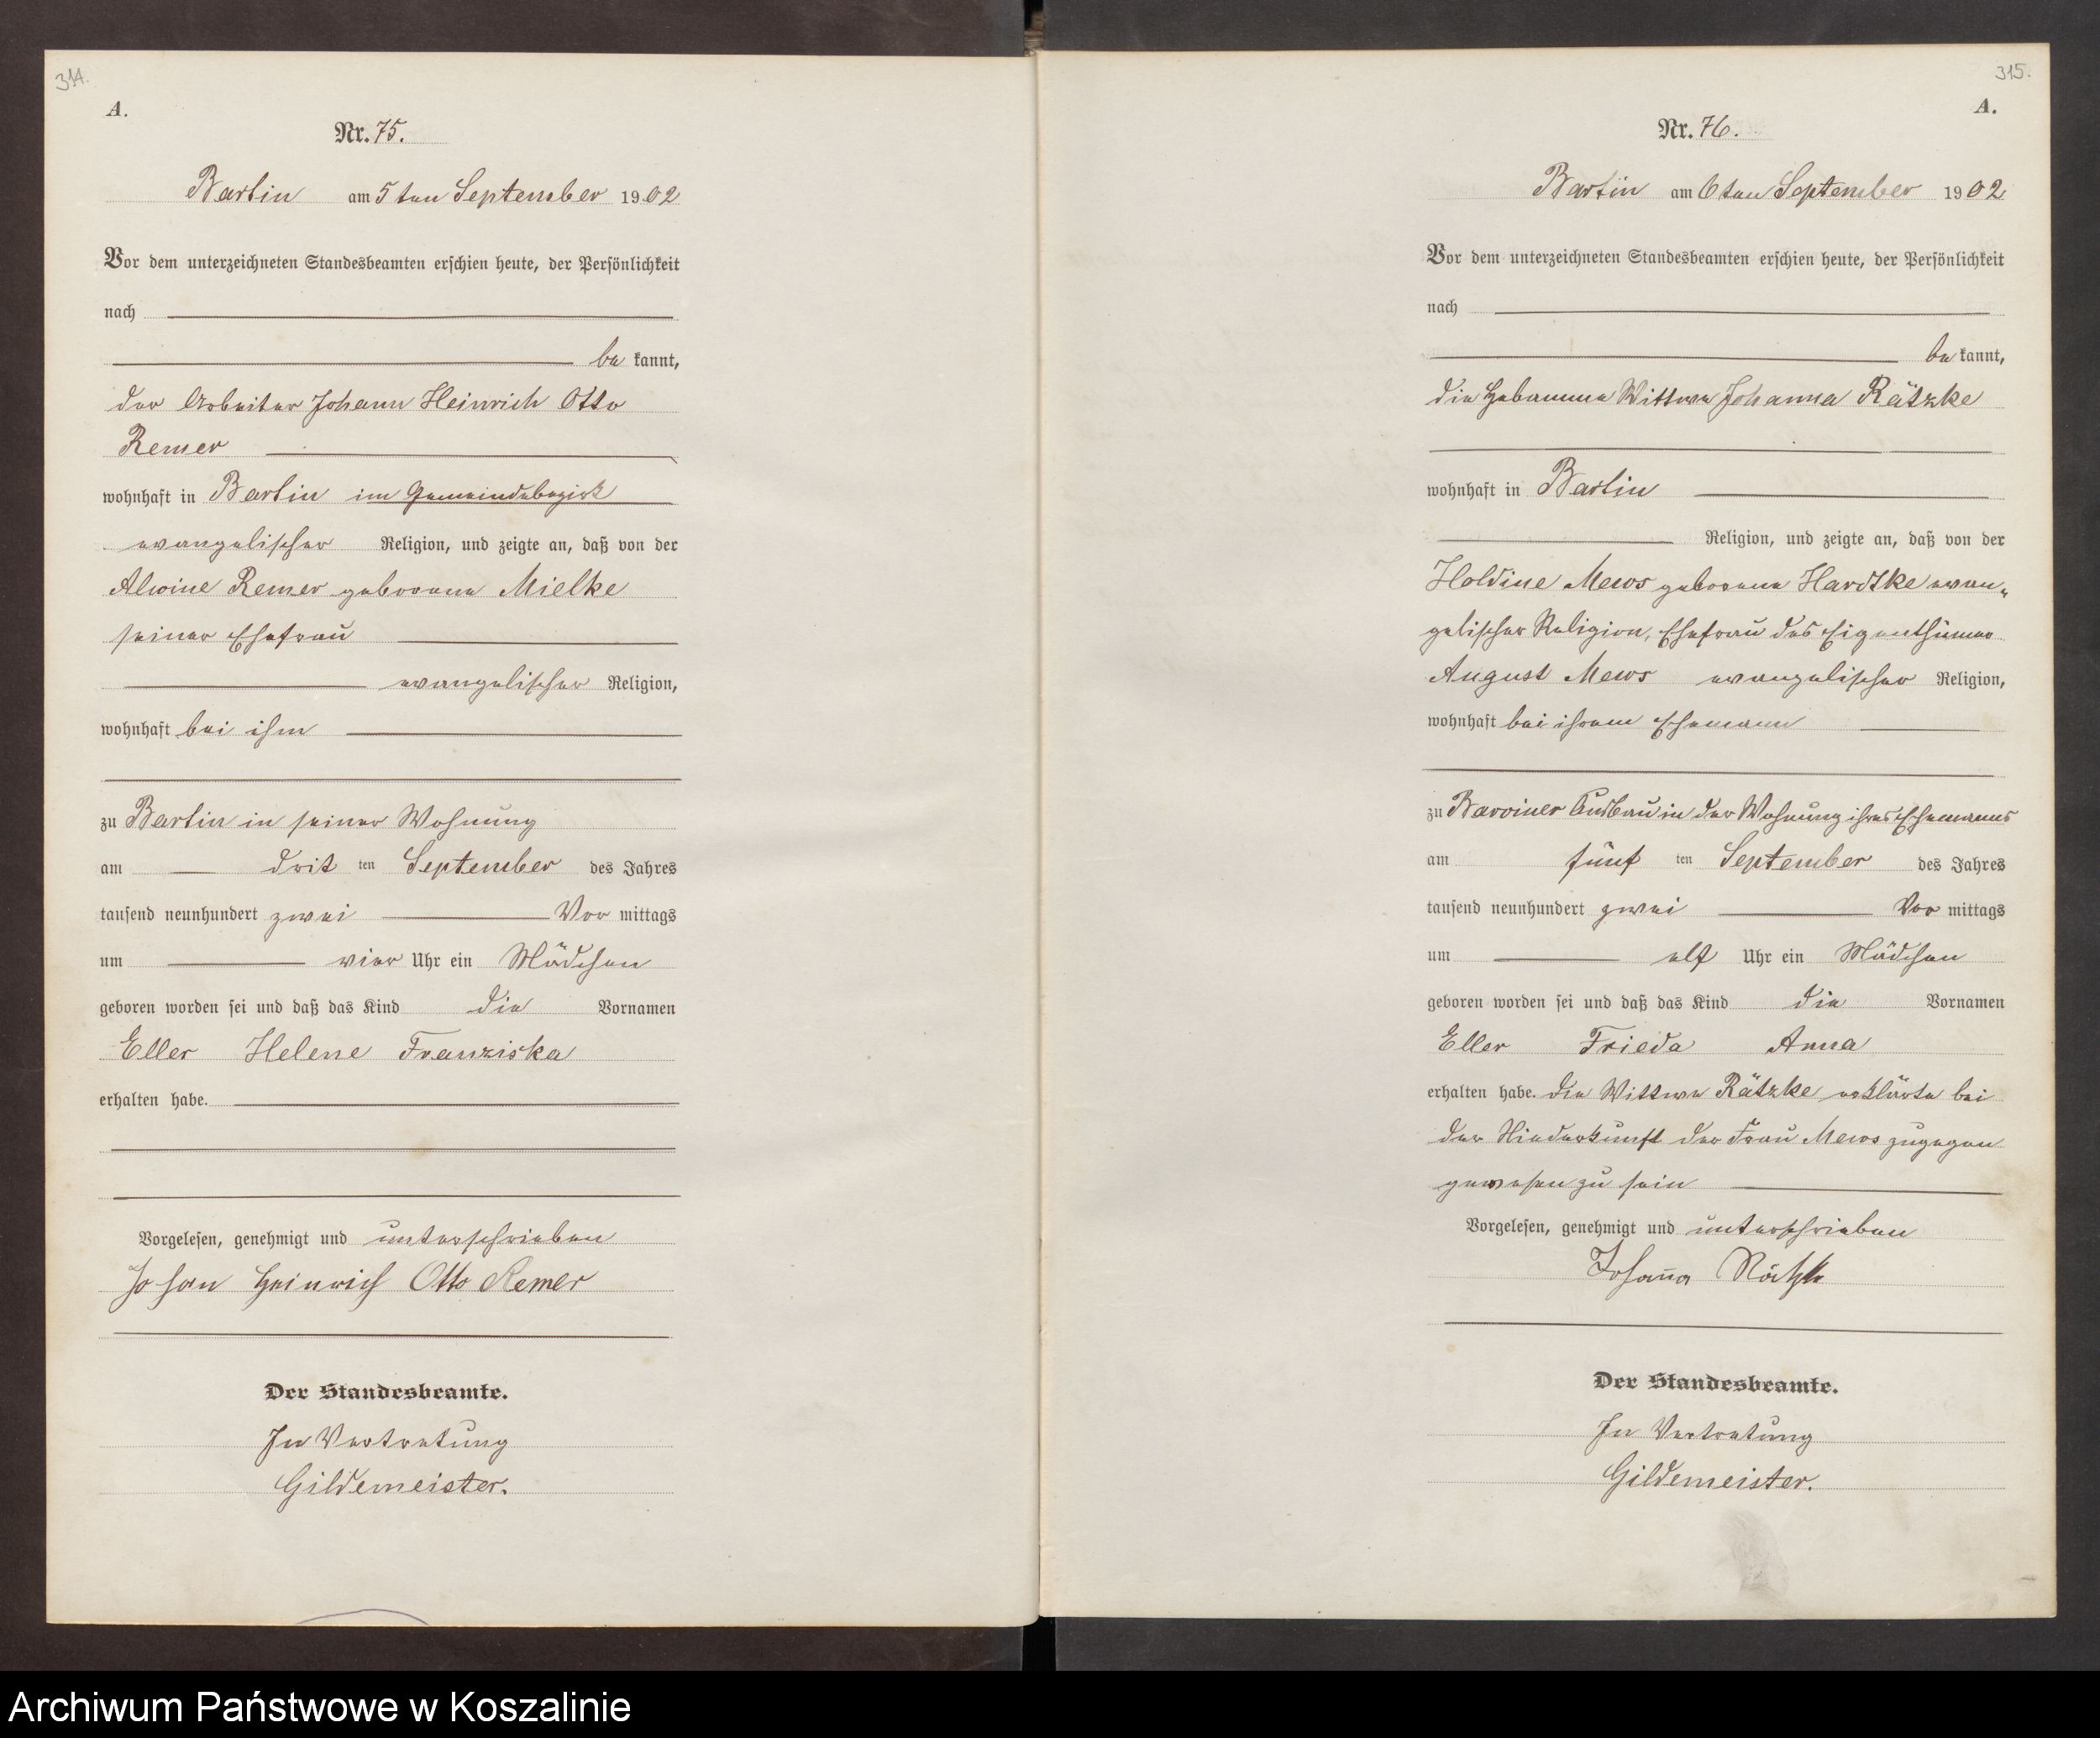 314.
A.
Nr. 75.
Bartin am 5ten September 1902
Vor dem unterzeichneten Standesbeamten erschien heute, der Persönlichkeit
nach
be kannt,
der Arbeiter Johann Heinrich Otto
Remer
wohnhaft in Bartin im Gemeindebezirk
evangelischer Religion, und zeigte an, daß von der
Alwine Remer geborene Mielke
seiner Ehefrau
evangelischer Religion,
wohnhaft bei ihm
zu Bartin in seiner Wohnung
am drit ten September des Jahres
tausend neunhundert zwei Vor mittags
um vier Uhr ein Mädchen
geboren worden sei und daß das Kind die Vornamen
Eller Helene Franziska
erhalten habe.
Vorgelesen, genehmigt und unterschrieben
Johan Heinrich Otto Remer
Der Standesbeamte.
In Vertretung
Gildemeister.
315.
A.
Nr. 76.
Bartin am 6ten September 1902
Vor dem unterzeichneten Standesbeamten erschien heute, der Persönlichkeit
nach
be kannt,
die Hebamme Wittwe Johanna Rätzke
wohnhaft in Bartin
Religion, und zeigte an, daß von der
Holdine Mews geborene Hardtke evan-
gelischer Religion, Ehefrau des Eigenthümer
August Mews evangelischer Religion,
wohnhaft bei ihrem Ehemann
zu Barviner Ausbau in der Wohnung ihres Ehemanns
am fünf ten September des Jahres
tausend neunhundert zwei Vor mittags
um elf Uhr ein Mädchen
geboren worden sei und daß das Kind die Vornamen
Eller Frieda Anna
erhalten habe. die Wittwe Rätzke erklärte bei
der Niederkunft der Frau Mews zugegen
gewesen zu sein
Vorgelesen, genehmigt und unterschrieben
Johanna Rätzke
Der Standesbeamte.
In Vertretung
Gildemeister.
Archiwum Państwowe w Koszalinie